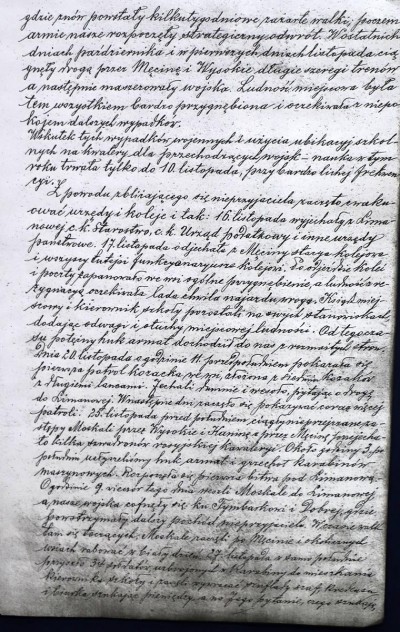 gdzie znów powstały kilkutygodniowe zażarte walki, poczem
armie nasze rozpoczęły strategiczny odwrót. W ostatnich
dniach października i w pierwszych dniach listopada cią-
gnęły drogą przez Męcinę i Wysokie długie szeregi trenów
a następnie maszerowały wojska. Ludność miejscowa była
tem wszystkiem bardzo przygnębiona i oczekiwała z niepo-
kojem dalszych wypadków.
Wskutek tych wypadków wojennych i użycia ubikacyj szkol-
nych na kwatery dla przechodzących wojsk - nauka w tym
roku trwała tylko do 10. listopada, przy bardzo lichej frekwen-
cyi.
Z powodu zbliżającego się nieprzyjaciela zaczęto ewaku-
ować urzędy i koleje i tak: 16. listopada wyjechały z Lima-
nowej c.k. Starostwo, c.k. Urząd podatkowy i inne urzędy
państwowe. 17. listopada odjechała z Męciny stacya kolejowa
i wszyscy tutejsi funkcyonaryusze kolejowi, to odjeździe kolei
i poczty zapanowało we wsi ogólne przygnębienie, a ludność z re-
zygnacyą oczekiwała lada chwila najazdu wroga. Ksiądz miej-
scowy i kierownik szkoły pozostali na swych stanowiskach,
dodając odwagi i otuchy miejscowej ludności. Od tego cza-
su potężny huk armat dochodził do nas z rozmaitych stron.
Dnia 20 listopada o godzinie 11. przedpołudniem pokazała się
pierwsza patrol kozacka we wsi, złożona z Kozaków
z długiemi lancami. Jechali dumnie i wesoło, pytając o drogę
do Limanowej. W następne dni zaczęło się pokazywać coraz więcej
patroli. 25. listopada przed południem, ciągły nieprzejrzane za-
stępy Moskali przez Wysokie i Kaninę a przez Męcinę przejecha-
ło kilka szwadronów rosyjskiej kawaleryi. Około godziny 3. po
południu usłyszeliśmy huk armat i grzechot karabinów
maszynowych. Rozpoczęła się pierwsza bitwa pod Limanową.
O godzinie 9. wieczór tego dnia weszli Moskale do Limanowej
a nasze wojska cofnęły się ku Tymbarkowi i Dobrej, gdzie
powstrzymały dalszy pochód nieprzyjaciela. W czasie walk
tam się toczących, Moskale zaczęli po Męcinie i okolicznych
wsiach rabować w biały dzień. 27. listopada w samo południe
przyszło 34 żołnierzy uzbrojonych Moskali do mieszkania
kierownika szkoły i zaczęli wywracać szuflady szaf kredensu
i biurka szukając pieniędzy, a na jego pytanie, czego szukają,